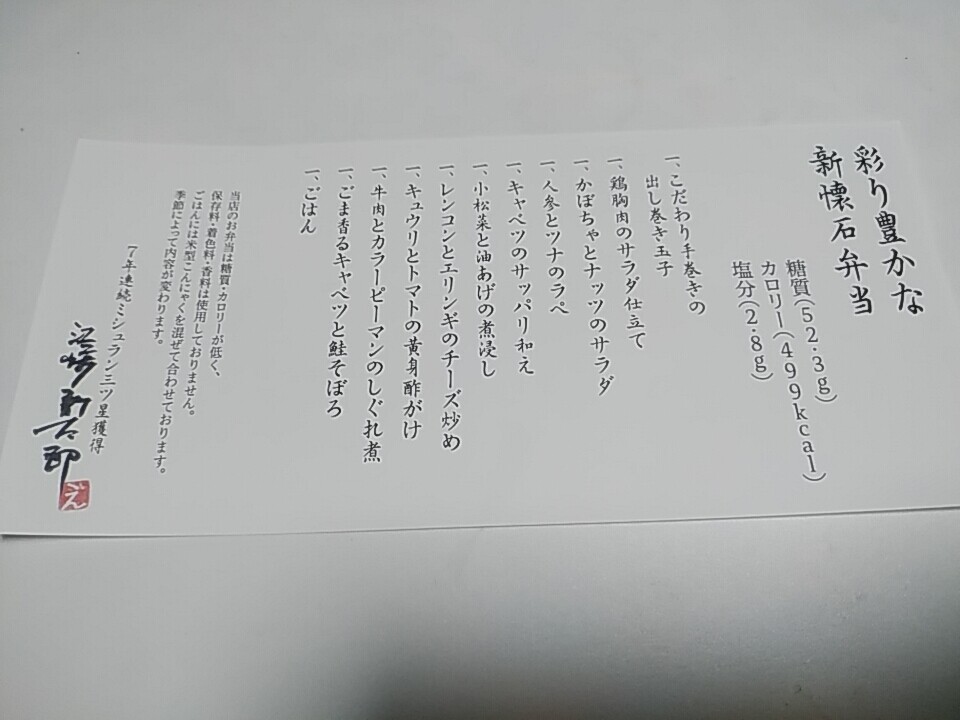 彩り豊かな
新懐石弁当
糖質(52.3g)
カロリー(499kcal)
塩分(2.8g)
一、こだわり手巻きの
出し巻き玉子
一、鶏胸肉のサラダ仕立て
一、かぼちゃとナッツのサラダ
一、人参とツナのラペ
一、キャベツのサッパリ和え
一、小松菜と油あげの煮浸し
一、レンコンとエリンギのチーズ炒め
一、キュウリとトマトの黄身酢がけ
一、牛肉とカラーピーマンのしぐれ煮
一、ごま香るキャベツと鮭そぼろ
一、ごはん
当店のお弁当は糖質・カロリーが低く、
保存料・着色料・香料は使用しておりません。
ごはんには米型こんにゃくを混ぜて合わせております。
季節によって内容が変わります。
7年連続ミシュラン三ツ星獲得
ごん